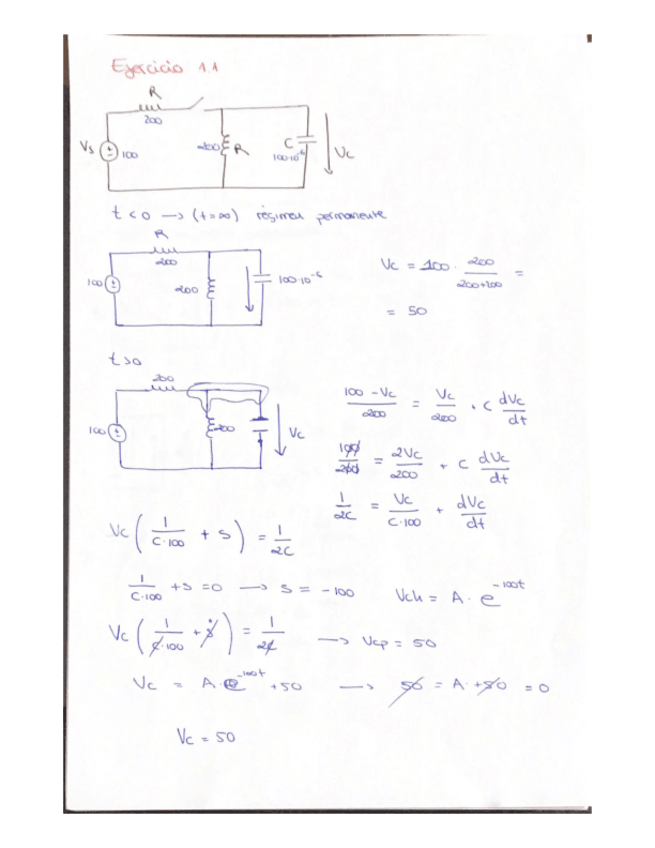 Ejercicio 1.1
R
200
Vs
100
200
R
C
100·10⁻⁶
Vc
t < 0 → (t=∞) régimen permanente
R
200
100
200
100·10⁻⁶
Vc = 100 · 200/(200+200) =
= 50
t>0
200
100
200
Vc
(100 - Vc)/200 = Vc/200 + C dVc/dt
100/200 = 2Vc/200 + C dVc/dt
1/2C = Vc/(C·100) + dVc/dt
Vc ( 1/(C·100) + s ) = 1/2C
1/(C·100) + s = 0 → s = -100 Vch = A · e^(-100t)
Vc ( 1/(C·100) + s ) = 1/2C → Vcp = 50
Vc = A·e^(-100t) + 50 → 50 = A + 50 = 0
Vc = 50